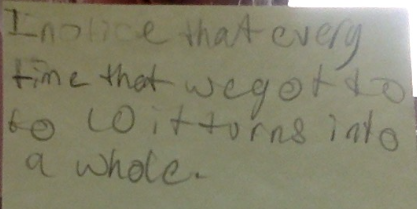 I notice that every
time that we got to
to 10 it turns into
a whole.